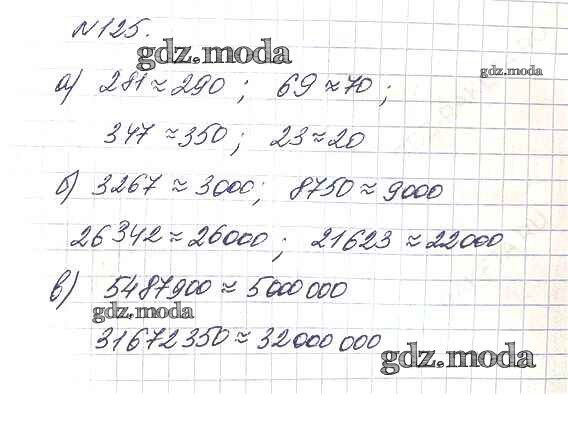 №125.
gdz.moda
а) 281≈290; 69≈70;
gdz.moda
347≈350; 23≈20
б) 3267≈3000; 8750≈9000
26342≈26000; 21623≈22000
в) 5487900≈5000000
gdz.moda
31672350≈32000000
gdz.moda